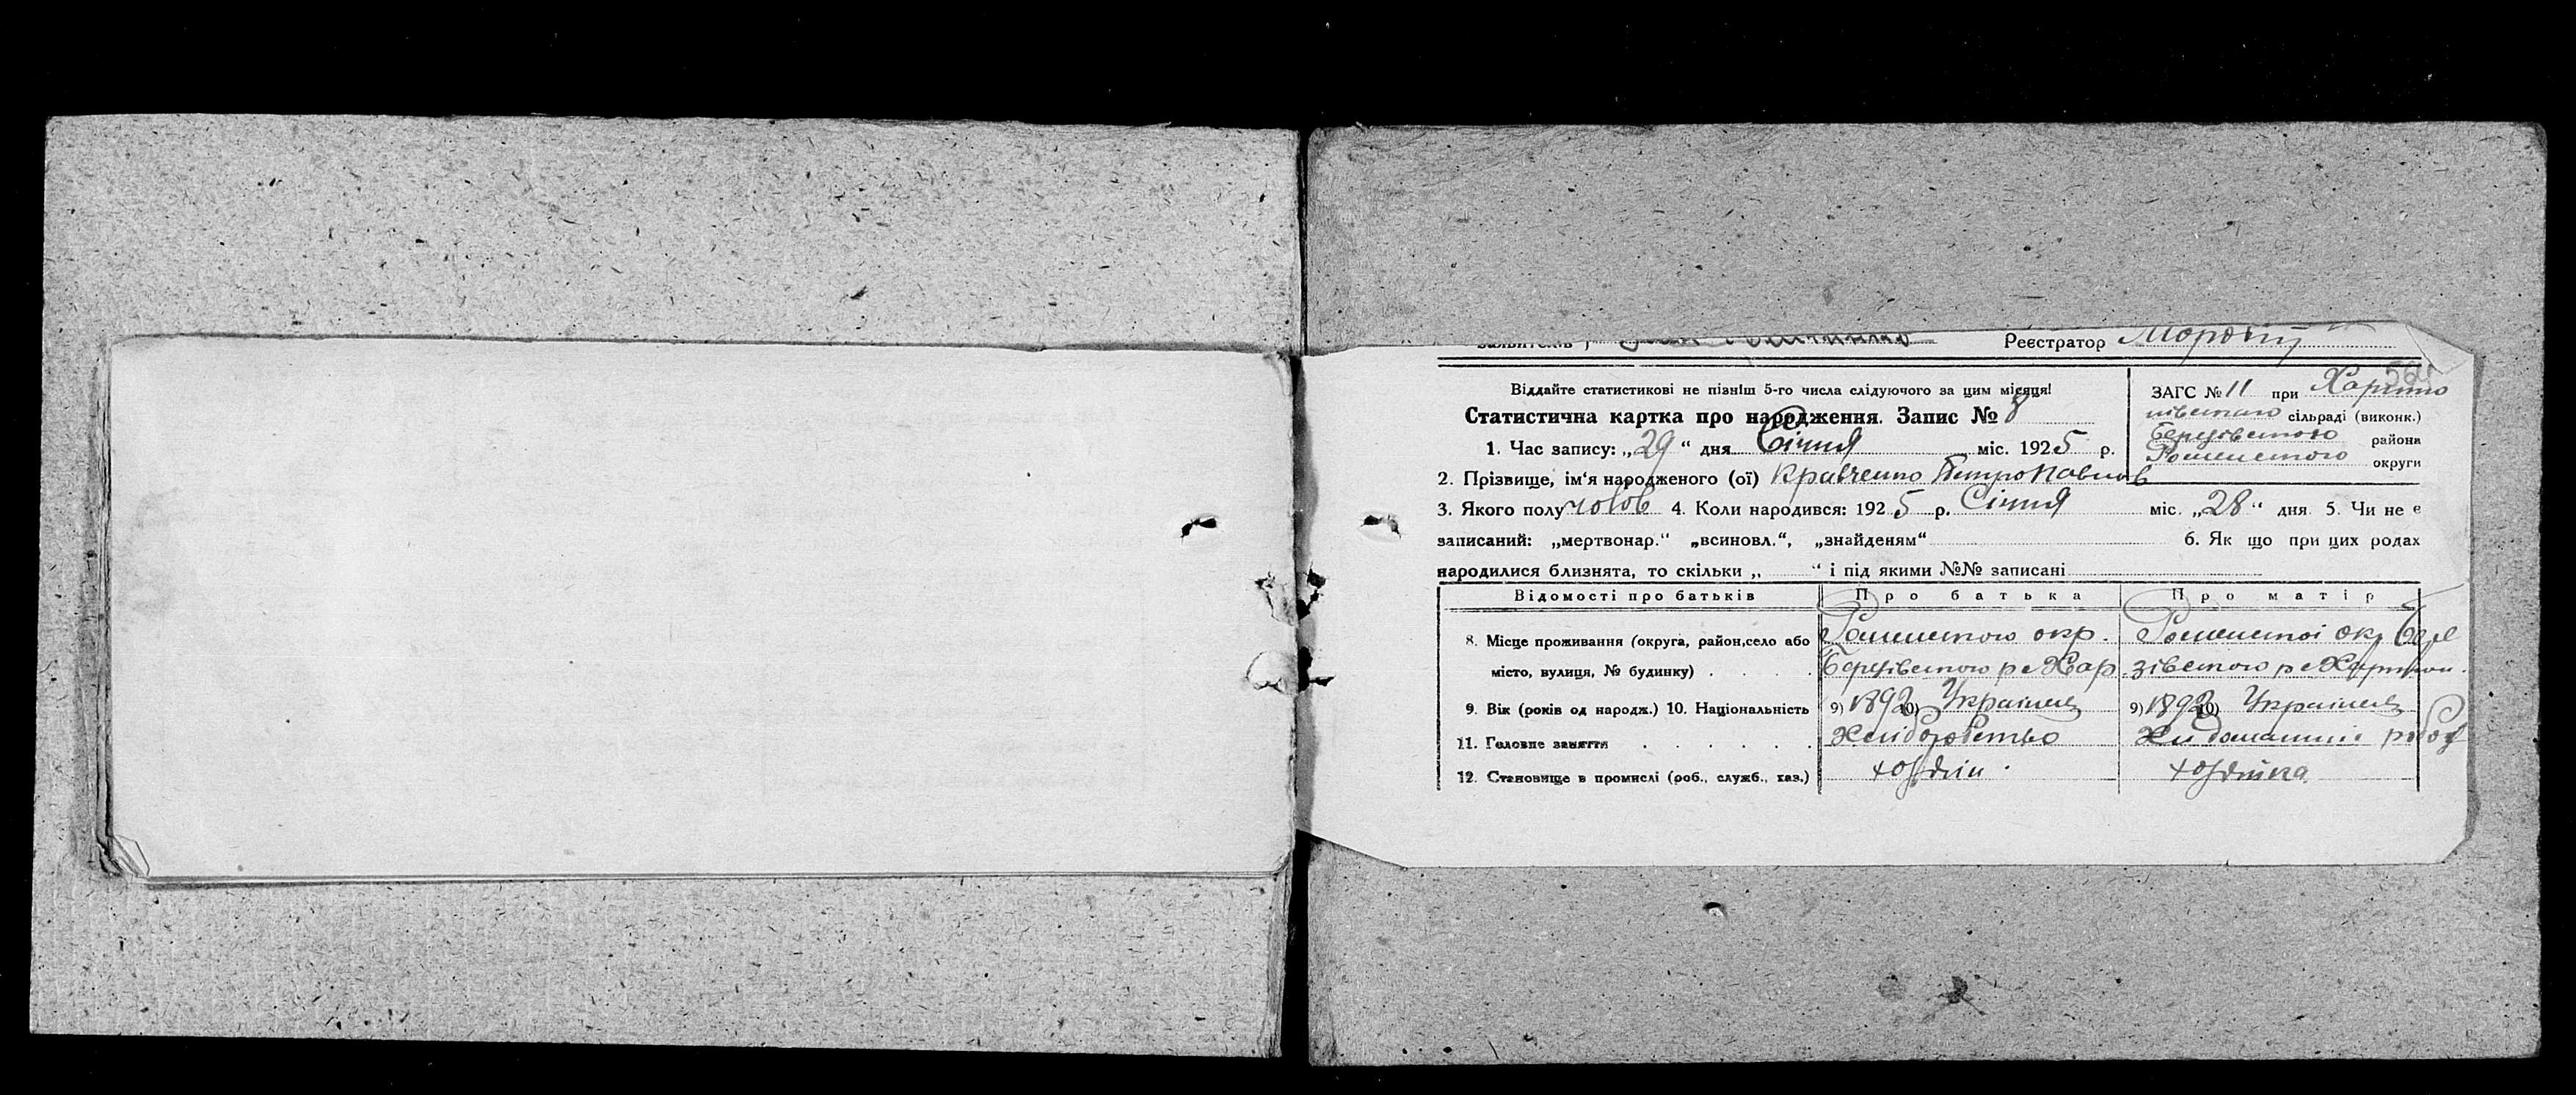 Реєстратор
564
Віддайте статистикові не пізніш 5-го числа слідуючого за цим місяця!
ЗАГС № 11 при Харито
нівського сільраді (виконк.)
Статистична картка про народження. Запис № 8
Березівського района
1. Час запису: „29“ дня Січня міс. 1925 р.
Роменського округи
2. Прізвище, ім'я народженого (ої) Кравченко Петро Павлов
3. Якого полу чолов 4. Коли народився: 1925 р. Січня міс. „28“ дня 5. Чи не є
записаний: „мертвонар.“ „всиновл.“, „знайденям“ 6. Як що при цих родах
народилися близнята, то скільки „ “ і під якими №№ записані
Відомості про батьків Про батька Про матір
8. Місце проживання (округа, район, село або Роменського окр. Роменської окр Бере
місто, вулиця, № будинку) . . . . Березівського р с Хар зівського р с Харитон.
9. Вік (років од народж.) 10. Національність 9) 1892 10) Українець 9) 1892 10) Українець
11. Головне заняття . . . . . . Хліборобство домашні робот
12. Становище в промислі (роб., служб., хаз.) хозяїн хозяйка